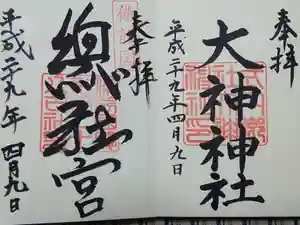 奉拝
大神神社
平成二十九年四月九日
奉拝
總社宮
平成二十九年四月九日